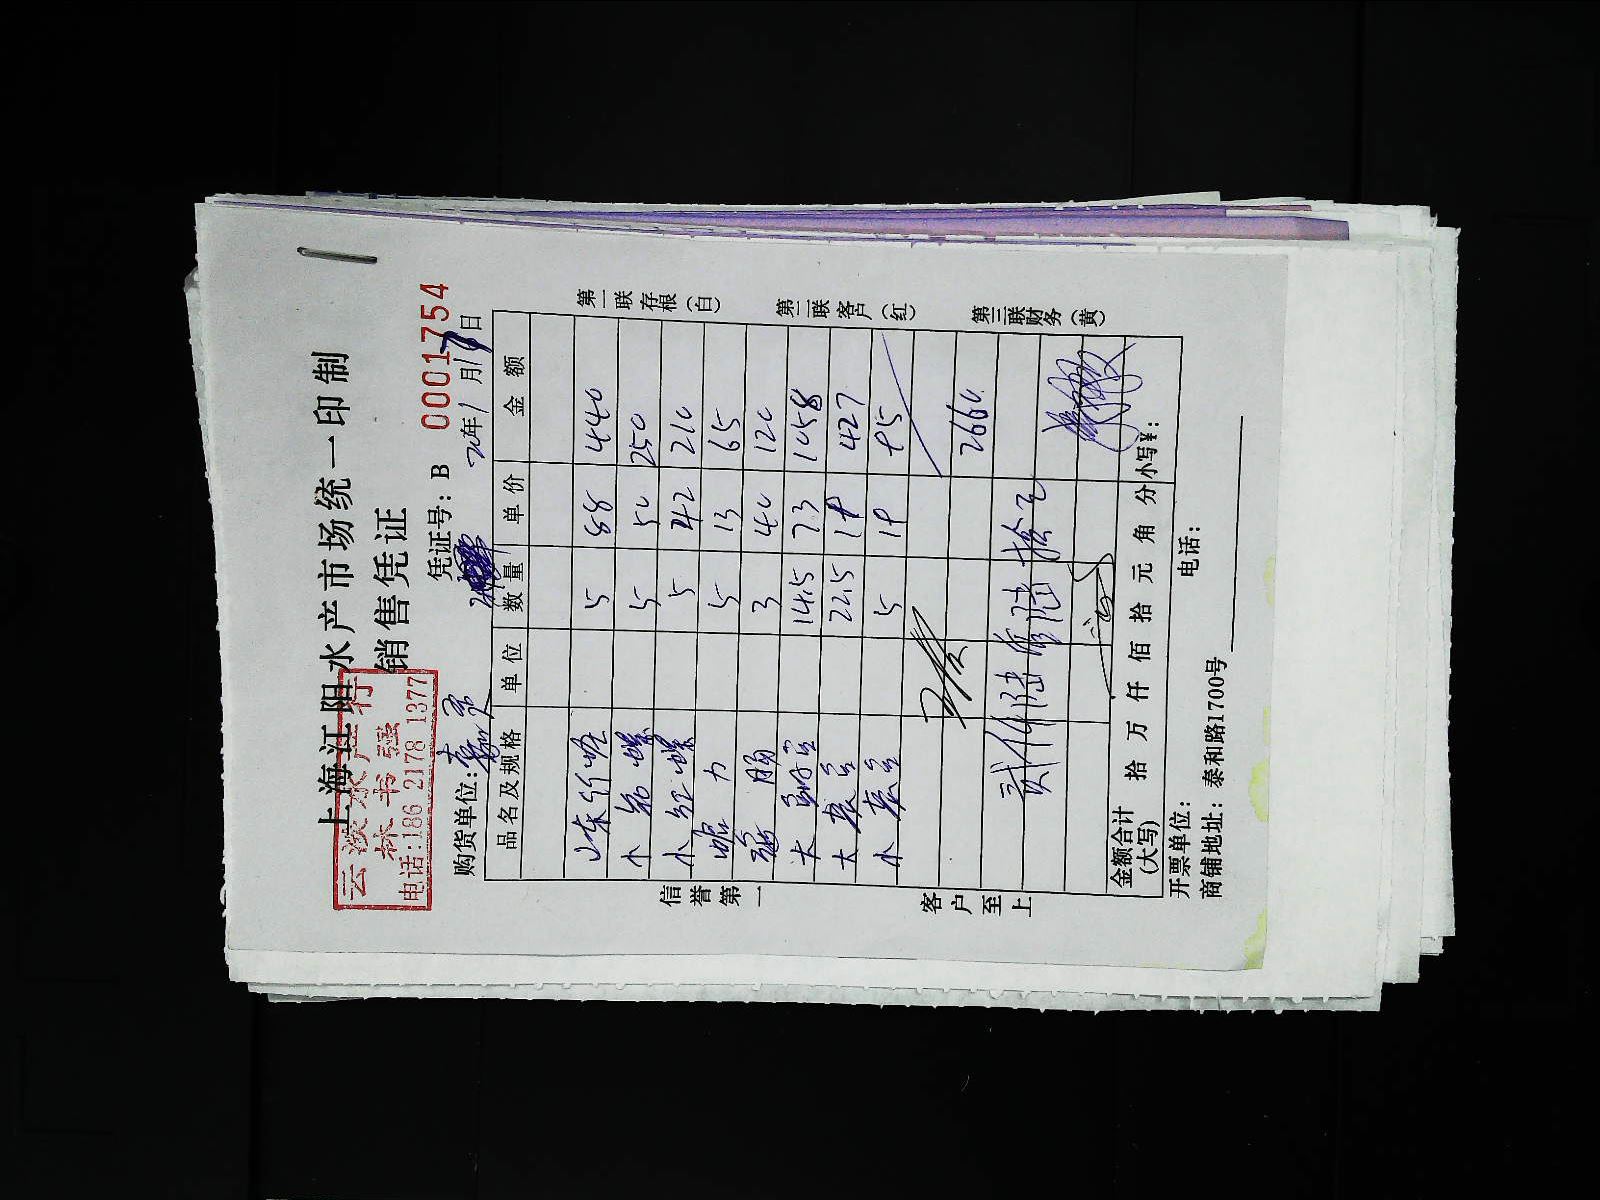 上海江阳水产市场统一印制
销售凭证
云淡水产行
林书强
电话:186 2178 1377
凭证号: B 0001754
购货单位:
20年1月16日
品名及规格 单位 数量 单价 金额
山东 5 88 440
小花螺 5 50 250
小红螺 5 42 210
蛏 5 13 65
肠 3 40 120
大 14.5 73 1058
大 22.5 19 427
小 5 19 95
2660
贰仟陆佰陆拾元
金额合计(大写) 拾 万 仟 佰 拾 元 角 分 小写¥:
开票单位: 电话:
商铺地址: 泰和路1700号
信誉第一
客户至上
第一联存根(白)
第二联客户(红)
第三联财务(黄)